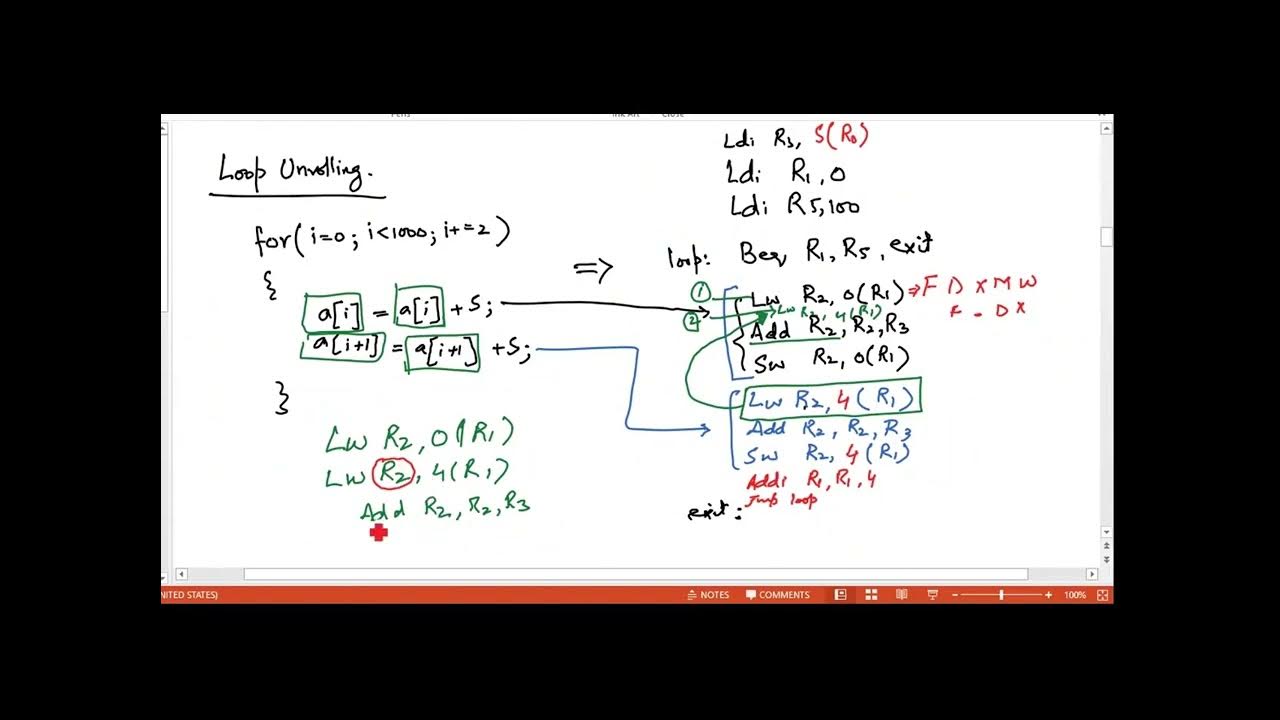 Loop Unrolling.
for( i=0 ; i<1000 ; i+=2 )
{
a[i] = a[i] + S;
a[i+1] = a[i+1] + S;
}
Lw R2, 0(R1)
Lw R2, 4(R1)
Add R2, R2, R3
=>
Ldi R3, S(R0)
Ldi R1, 0
Ldi R5, 100
loop: Beq R1, R5, exit
1 Lw R2, 0(R1) => F D X M W
2 Lw R2, 4(R1) F - D X
Add R2, R2, R3
Sw R2, 0(R1)
Lw R2, 4(R1)
Add R2, R2, R3
Sw R2, 4(R1)
Addi R1, R1, 4
Jmp loop
exit:
NITED STATES)
NOTES
COMMENTS
100%